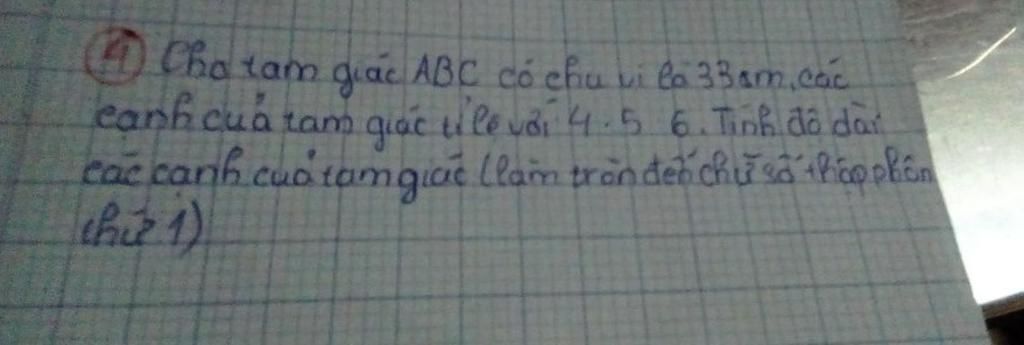 4 Cho tam giác ABC có chu vi là 33cm, các
cạnh của tam giác tỉ lệ với 4. 5 6. Tính độ dài
các cạnh của tam giác (làm tròn đến chữ số thập phân
thứ 1)